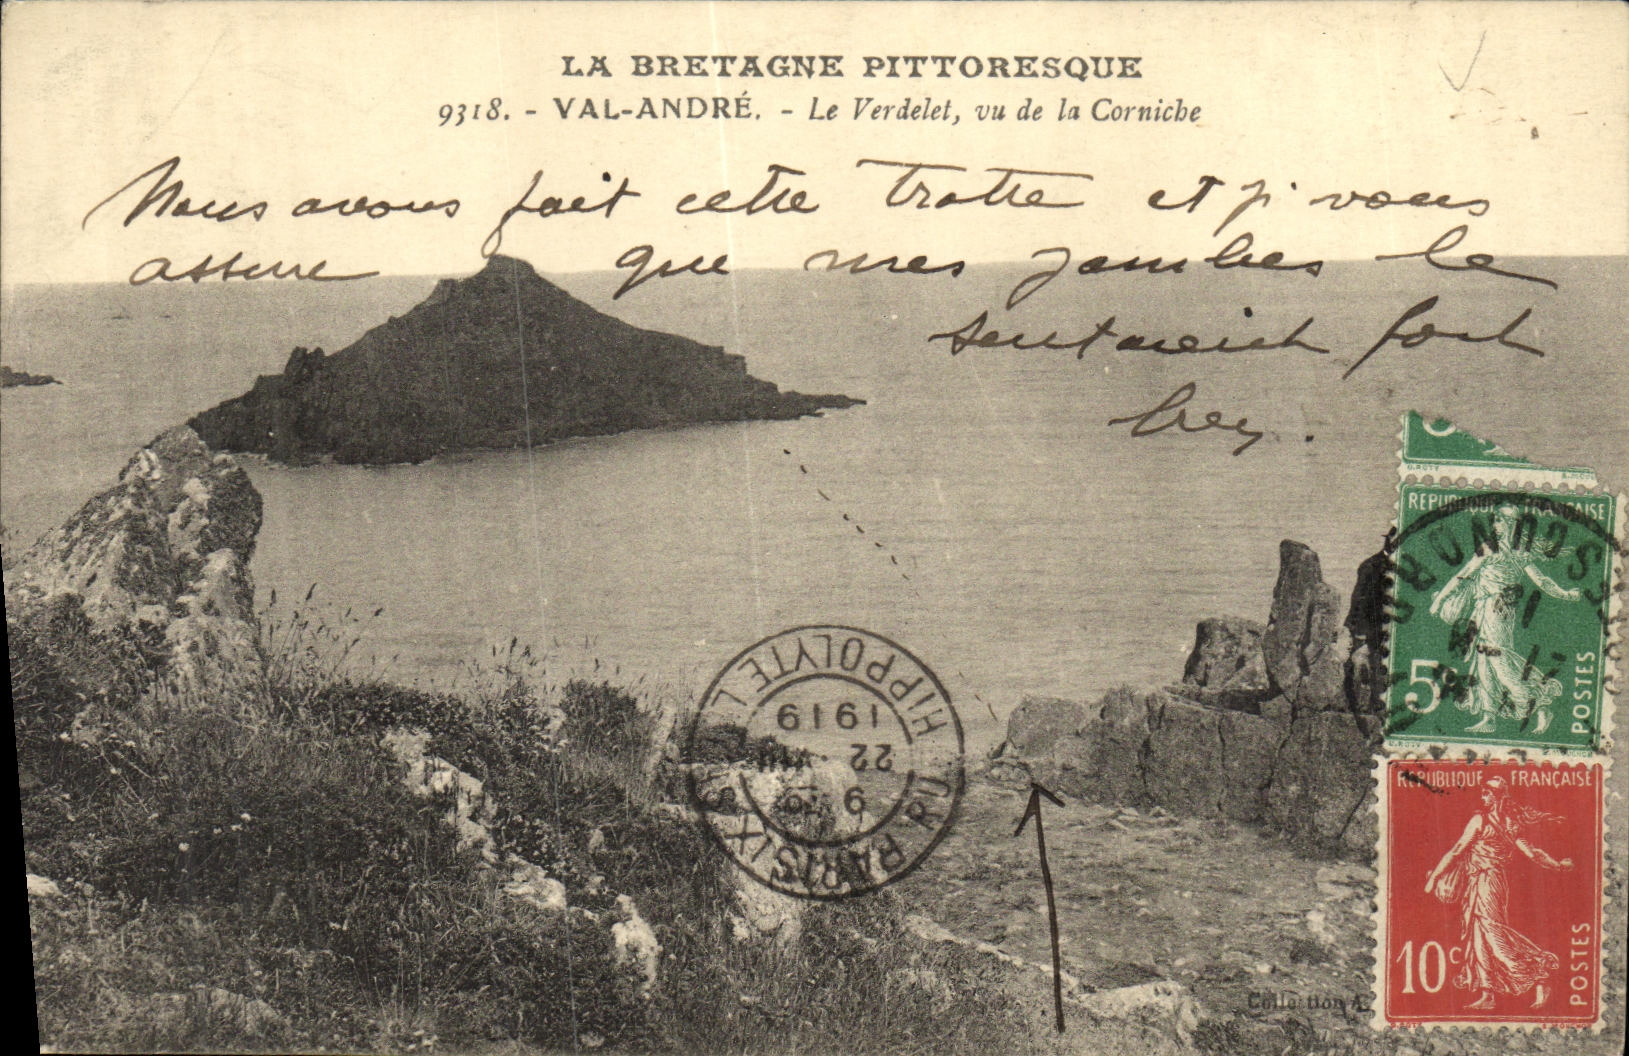 LA BRETAGNE PITTORESQUE
9318. - VAL-ANDRÉ. - Le Verdelet, vu de la Corniche
Nous avons fait cette trotte et je vous
assure que mes jambes le
sentaient fort
bien.
REPUBLIQUE FRANÇAISE
5
POSTES
REPUBLIQUE FRANÇAISE
10c
POSTES
PARIS IX
HIPPOLYTE
1919
22
9
Collection A.